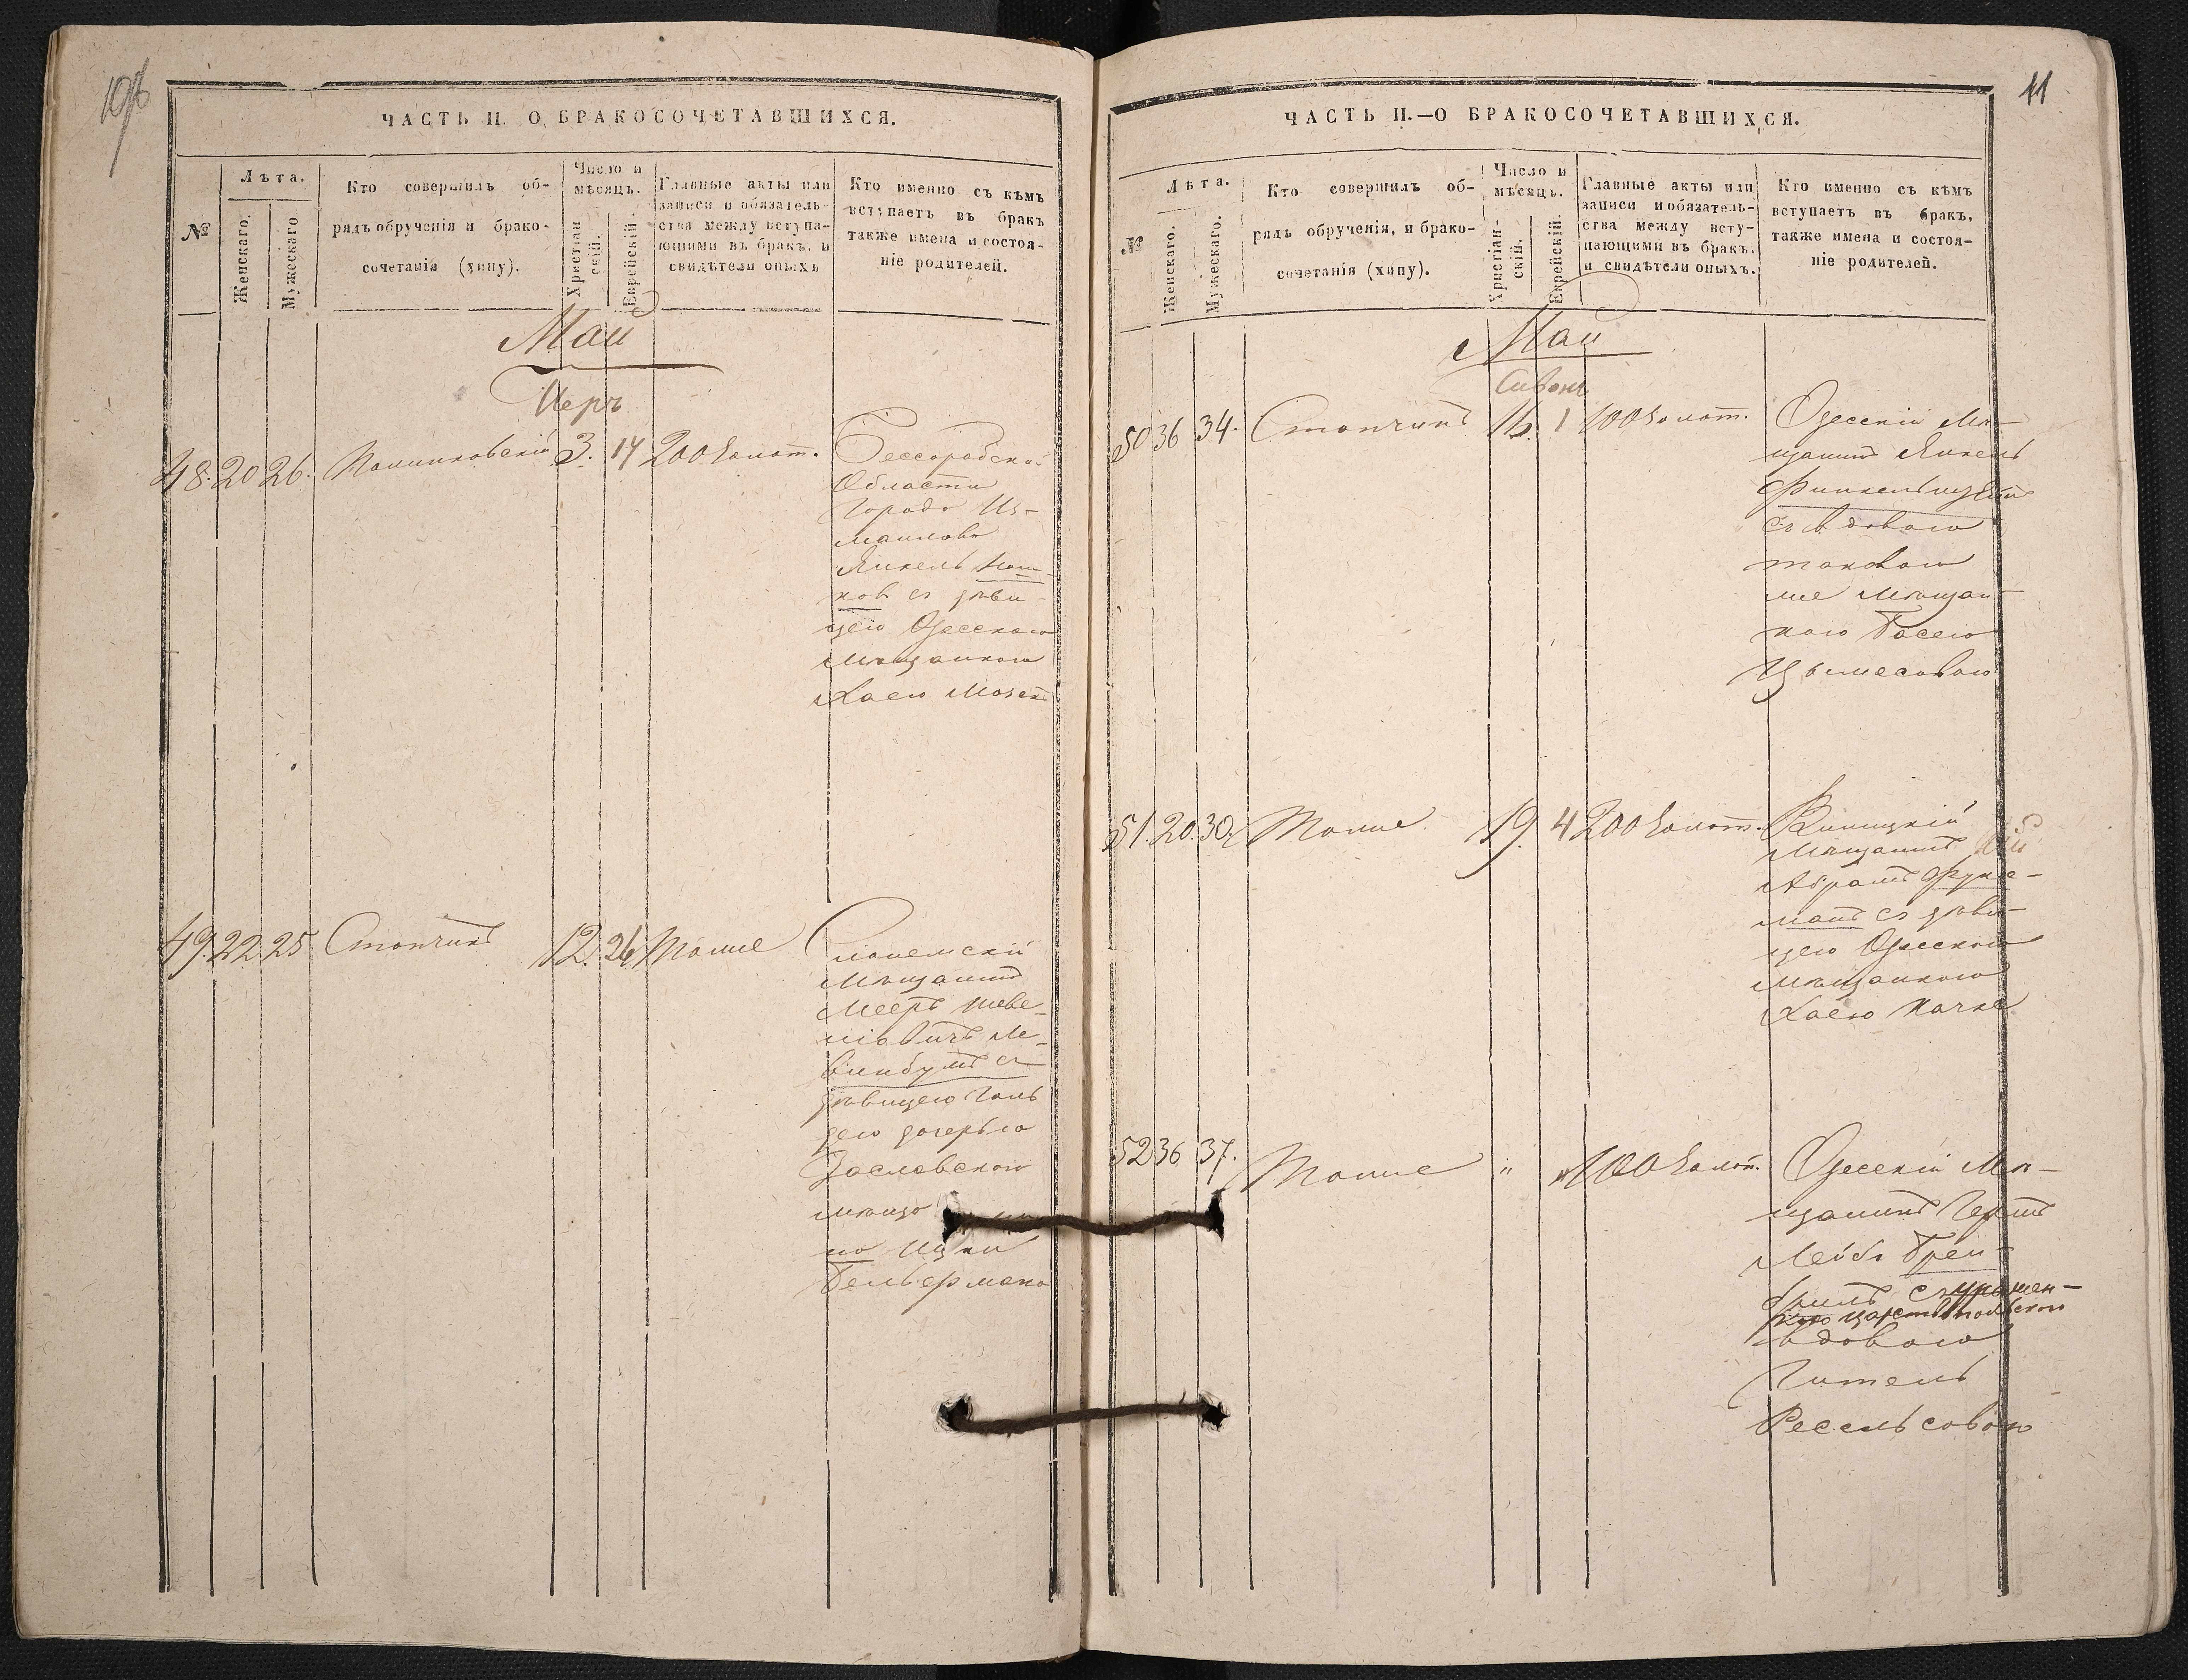 10об
ЧАСТЬ II. О БРАКОСОЧЕТАВШИХСЯ.
№
Лѣта.
Женскаго.
Мужескаго
Кто совершилъ об-
рядъ обрученія и брако-
сочетанія (хупу).
Число и
мѣсяцъ.
Христіан
скій.
Еврейскій.
Главные акты или
записи и обязатель-
ства между вступа-
ющими въ бракъ, и
свидѣтели оныхъ
Кто именно съ кѣмъ
вступаетъ въ бракъ
также имена и состоя-
ніе родителей.
Май
Иеръ
48. 20 26. 3. 14 200 золот.
Бессорабской
Области
Города Из-
маилова
Янкель
съ дѣви-
цею Одесскою
Мѣщанкою
Хаею
49. 22 25 Стопчикъ 12. 26 Тоже
Слонемскій
Мѣщанинъ
Мееръ Шеве-
лiовичъ Ле-
винбумъ съ
дѣвицею Голь
дею дочерью
Заславскаго
мѣща
на Ицки
Бельфермана
11
ЧАСТЬ II.—О БРАКОСОЧЕТАВШИХСЯ.
№
Лѣта.
Женскаго.
Мужескаго.
Кто совершилъ об-
рядъ обрученія, и брако-
сочетанія (хупу).
Число и
мѣсяцъ.
Христіан-
скій.
Еврейскій.
Главные акты или
записи и обязатель-
ства между всту-
пающими въ бракъ.
и свидѣтели оныхъ.
Кто именно съ кѣмъ
вступаетъ въ бракъ,
также имена и состоя-
ніе родителей.
Май
Сивонъ
50 36 34. Стопчикъ 16. 1 100 золот.
Одесскій Мѣ-
щанинъ Янкель
съ вдовою
таковою
же Мѣщан-
кою Басею
Цымесовою
51. 20. 30. Тоже 19. 4 200 золот.
Виницкій
Мѣщанинъ
Абрамъ Фукс-
манъ съ дѣви-
цею Одесскою
Мѣщанкою
Хаею
52 36 37. Тоже " " 100 золот.
Одесскій Мѣ-
щанинъ Гершъ
Лейбъ
съ
царства польскаго
вдовою
Гитель
Ресельсовою